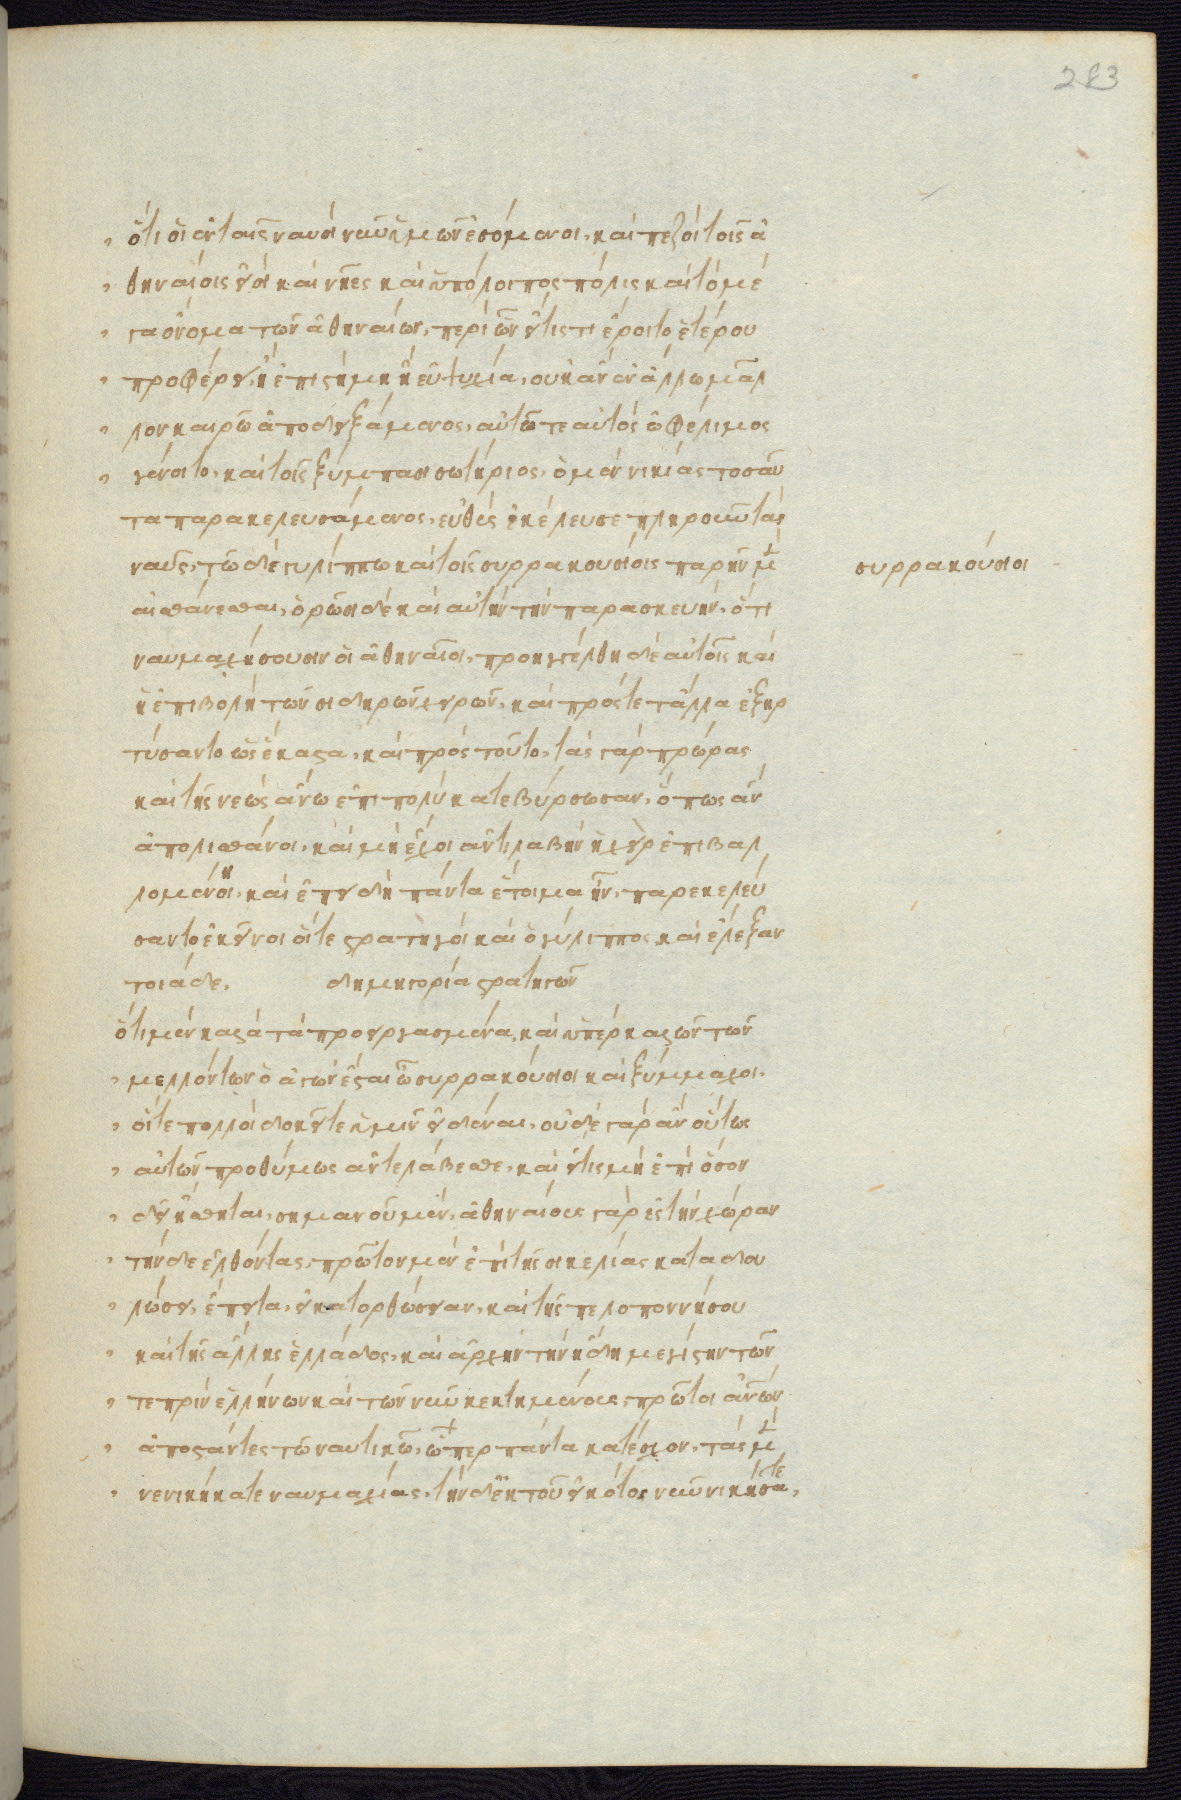 283
ὅτι οἱ ἐν ταῖς ναυσὶ νῦν ὑμῶν ἐσόμενοι, καὶ πεζοὶ τοῖς ἀ
θηναίοις εἰσὶ καὶ νῆες καὶ ὑπόλοιπος πόλις καὶ τὸ μέ
γα ὄνομα τῶν ἀθηναίων, περὶ ὧν εἴ τίς τι ἕροιτο ἑτέρου
προφέρει, ἢ ἐπιστήμη ἢ εὐψυχία, οὐκ ἂν ἐν ἄλλω μᾶλ
λον καιρῶ ἀποδειξάμενος, αὐτῶ τε αὐτὸς ὠφέλιμος
γένοιτο, καὶ τοῖς ξύμπασι σωτήριος, ὁ μὲν νικίας τοσαῦ
τα παρακελευσάμενος, εὐθὺς ἐκέλευσε πληροῦν τὰς
ναῦς, τῶ δὲ γυλίππω καὶ τοῖς συρρακουσίοις παρῆν μὲν
συρρακούσιοι
αἰσθάνεσθαι, ὁρῶσι δὲ καὶ αὐτὴν τὴν παρασκευὴν, ὅτι
ναυμαχήσουσιν οἱ ἀθηναῖοι, προηγγέλθη δὲ αὐτοῖς καὶ
ἡ ἐπιβολὴ τῶν σιδηρῶν χειρῶν, καὶ πρός τε τἄλλα ἐξηρ
τύσαντο ὡς ἕκαστα, καὶ πρὸς τοῦτο, τὰς γὰρ πρώρας
καὶ τῆς νεὼς ἄνω ἐπιπολὺ κατεβύρσωσαν, ὅπως ἂν
ἀπολισθάνοι, καὶ μὴ ἔχοι ἀντιλαβὴν ἡ χεὶρ ἐπιβαλ
λομένη, καὶ ἐπειδὴ πάντα ἑτοῖμα ἦν, παρεκελεύ
σαντο ἐκείνοι οἵ τε στρατηγοὶ καὶ ὁ γύλιππος καὶ ἔλεξαν
τοιάδε, δημηγορία στρατηγῶν
ὅτι μὲν καλὰ τὰ προειργασμένα, καὶ ὑπὲρ καλῶν τῶν
μελλόντων ὁ ἀγὼν ἔσται ὦ συρρακούσιοι καὶ ξύμμαχοι.
οἵ τε πολλοὶ δοκεῖτε ἡμῖν εἰδέναι, οὐδὲ γὰρ ἂν οὕτως
αὐτῶν προθύμως ἀντελάβεσθε, καὶ εἴ τις μὴ ἐπὶ ὅσον
δεῖ ἤσθηται, σημανοῦμεν, ἀθηναίους γὰρ ἐς τὴν χώραν
τήνδε ἐλθόντας, πρῶτον μὲν ἐπὶ τῆς σικελίας καταδου
λώσει, ἔπειτα, εἰ κατορθώσειαν, καὶ τῆς πελοποννήσου
καὶ τῆς ἄλλης ἑλλάδος, καὶ ἀρχὴν τὴν ἤδη μεγίστην τῶν
τε πρὶν ἑλλήνων καὶ τῶν νῦν κεκτημένους πρῶτοι ἀνθρώπων
ἀποστάντες τῶ ναυτικῶ, ὧπερ πάντα κατέσχον, τὰς μὲν
νενικήκατε ναυμαχίας, τὴν δ' ἐκ τοῦ εἰκότος νῦν νικήσετε,